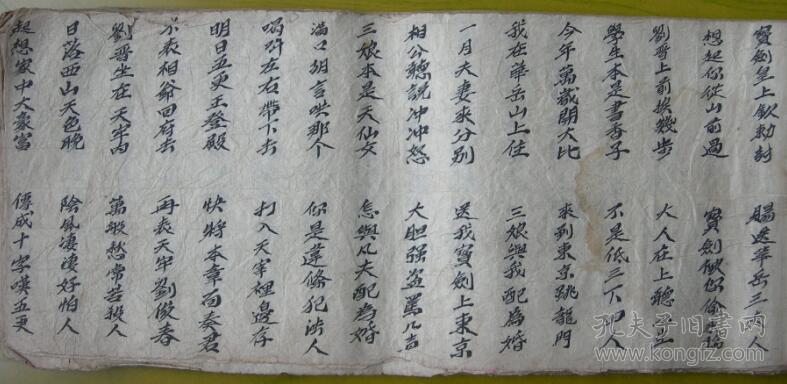 寶劍皇上欽勅封 賜送華岳三人
想起你從山前過 寶劍被你偷
劉晋上前挨幾步 大人在上聽
學生本是書香子 不是低三下四人
今年萬歲開大比 來到東京跳龍門
我在華岳山上住 三娘與我配為婚
一月夫妻來分別 送我寶劍上東京
相公聽說冲冲怒 大胆强盜罵几声
三娘本是天仙女 怎與凡夫配為婚
滿口胡言哄那个 你是違條犯法人
喝叫左右帶下去 打入天牢裡邊存
明日五更王登殿 快將本章面奏君
不表相爺回府去 再表天牢劉俊春
劉晋坐在天牢内 萬般愁常苦殺人
日落西山天色晚 陰風凄凄好怕人
起想家中大豪富 傳成十字嘆五更
孔夫子旧书网
www.kongfz.com